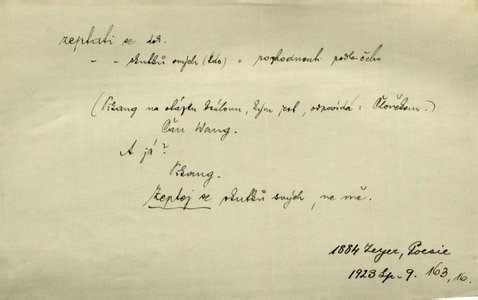 zeptati se dok.
- - skutků svých (kdo) = rozhodnouti podle čeho
(Pitang na otázku králova, kým jest, odpovídá: Člověkem.)
Čan Wang.
A já?
Pitang.
Zeptej se skutků svých, ne mě.
1884 Zeyer, Poesie
1923 Sp. 9. 163, 16.